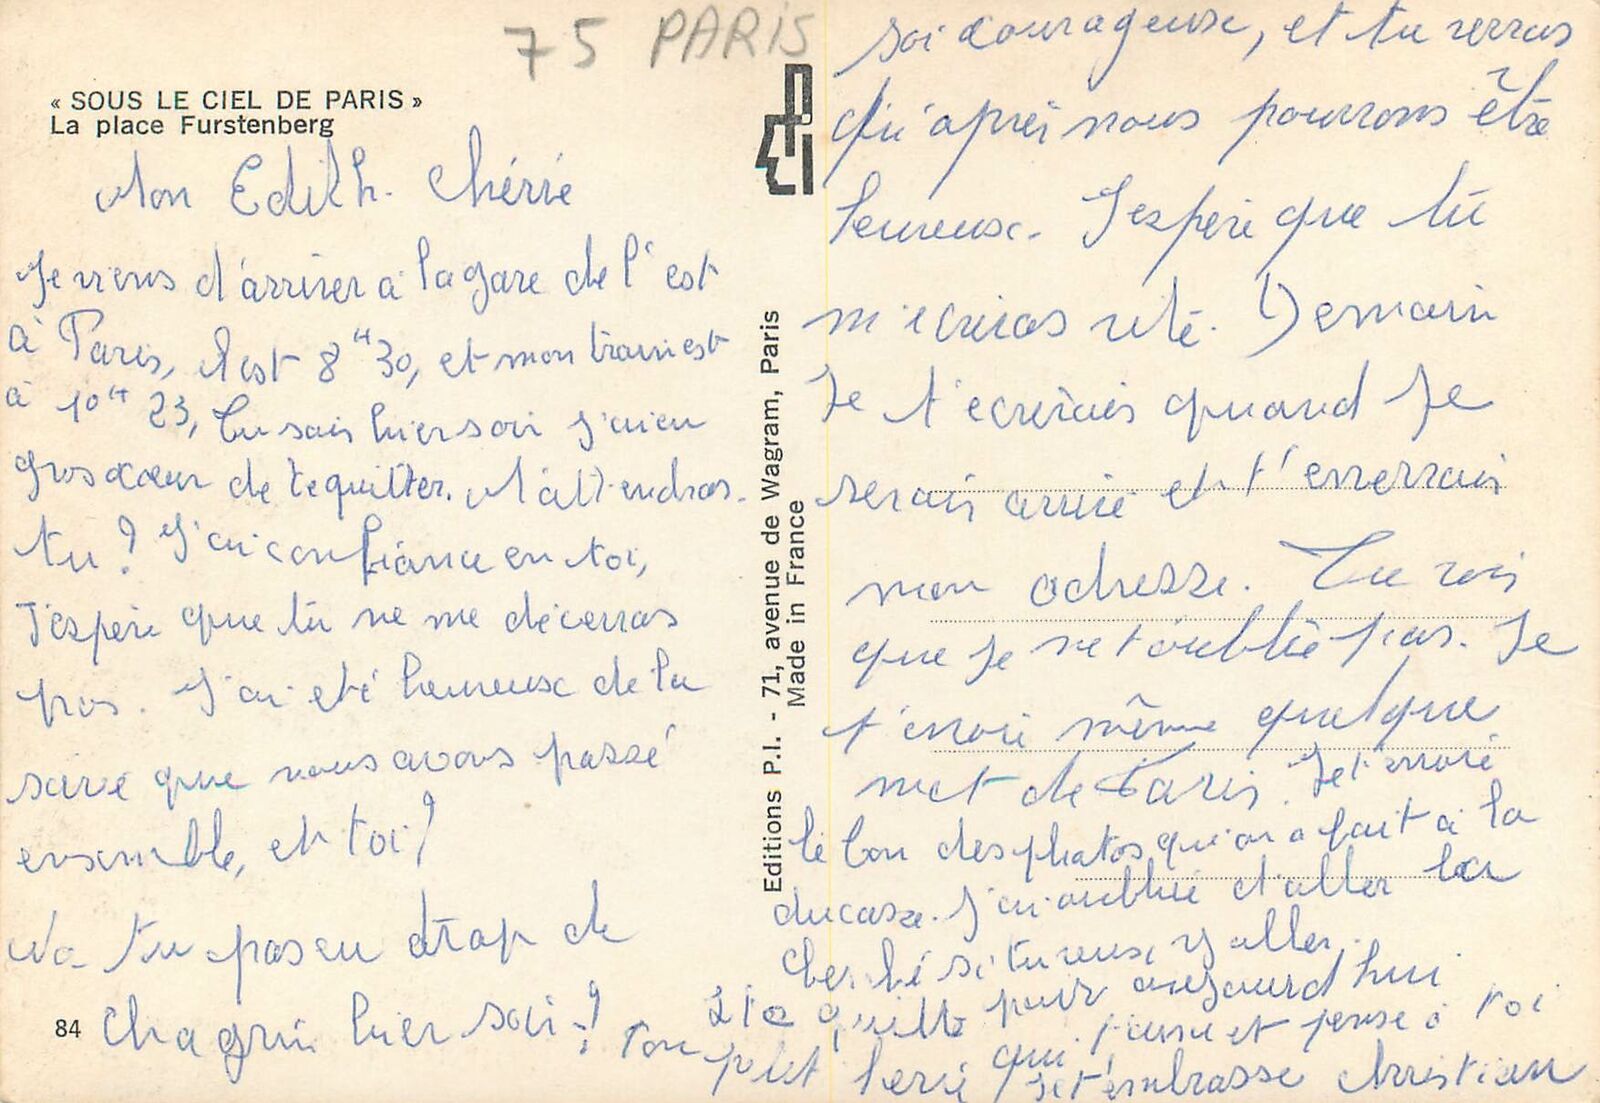 75 PARIS
« SOUS LE CIEL DE PARIS »
La place Furstenberg
Mon Edith. Chérie
Je viens d'arriver à la gare de l'est
à Paris, il est 8H30, et mon train est
à 10H 23, Tu sais hier soir j'ai eu
gros coeur de te quitter. M'attendras-
tu ? J'ai confiance en toi,
J'espère que tu ne me décevras
pas. J'ai été heureuse de la
soiré que nous avons passé
ensemble, et toi ?
N'a tu pas eu trop de
chagrin hier soir ?
soi courageuse, et tu verras
qu'après nous pourrons être
heureuse. J'espère que tu
m'ecriras vite. Demain
Je t'ecrirais quand Je
serais arrivé et t'enverrais
mon adresse. Tu vois
que je ne t'oublie pas. Je
t'envoie même quelque
mot de Paris. Je t'envoie
le bon des photos qu'on a fait à la
ducasse. J'ai oublié d'aller la
cherché si tu veux y aller.
Je te quitte pour aujourd'hui
Ton petit qui t'aime et pense à toi
Je t'embrasse Christian
Editions P.I. - 71, avenue de Wagram, Paris
Made in France
PI
84